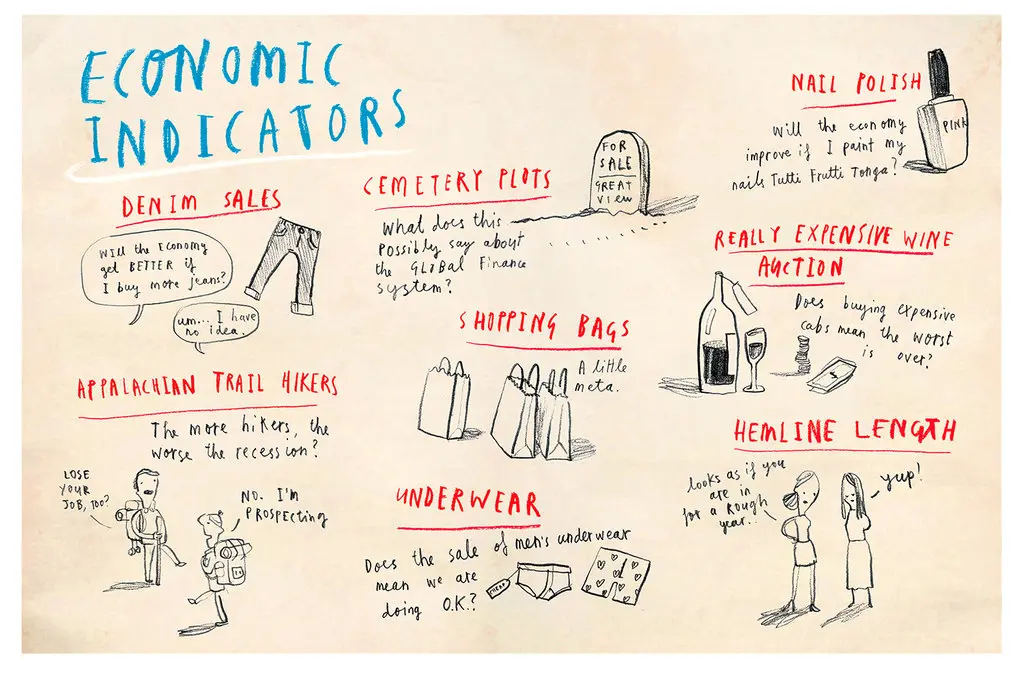 ECONOMIC
INDICATORS
DENIM SALES
Will the Economy
get BETTER if
I buy more jeans?
um... I have
no idea.
APPALACHIAN TRAIL HIKERS
The more hikers, the
worse the recession?
LOSE
YOUR
JOB, TOO?
NO. I'M
PROSPECTING
CEMETERY PLOTS
What does this
possibly say about
the GLOBAL Finance
system?
FOR
SALE
GREAT
View
SHOPPING BAGS
A little
meta.
UNDERWEAR
Does the sale of men's underwear
mean we are
doing O.K.?
NAIL POLISH
Will the economy
improve if I paint my
nails Tutti Frutti Tonga?
PINK
REALLY EXPENSIVE WINE
AUCTION
Does buying expensive
cabs mean the worst
is over?
HEMLINE LENGTH
looks as if you
are in
for a ROUGH
year..
yup!